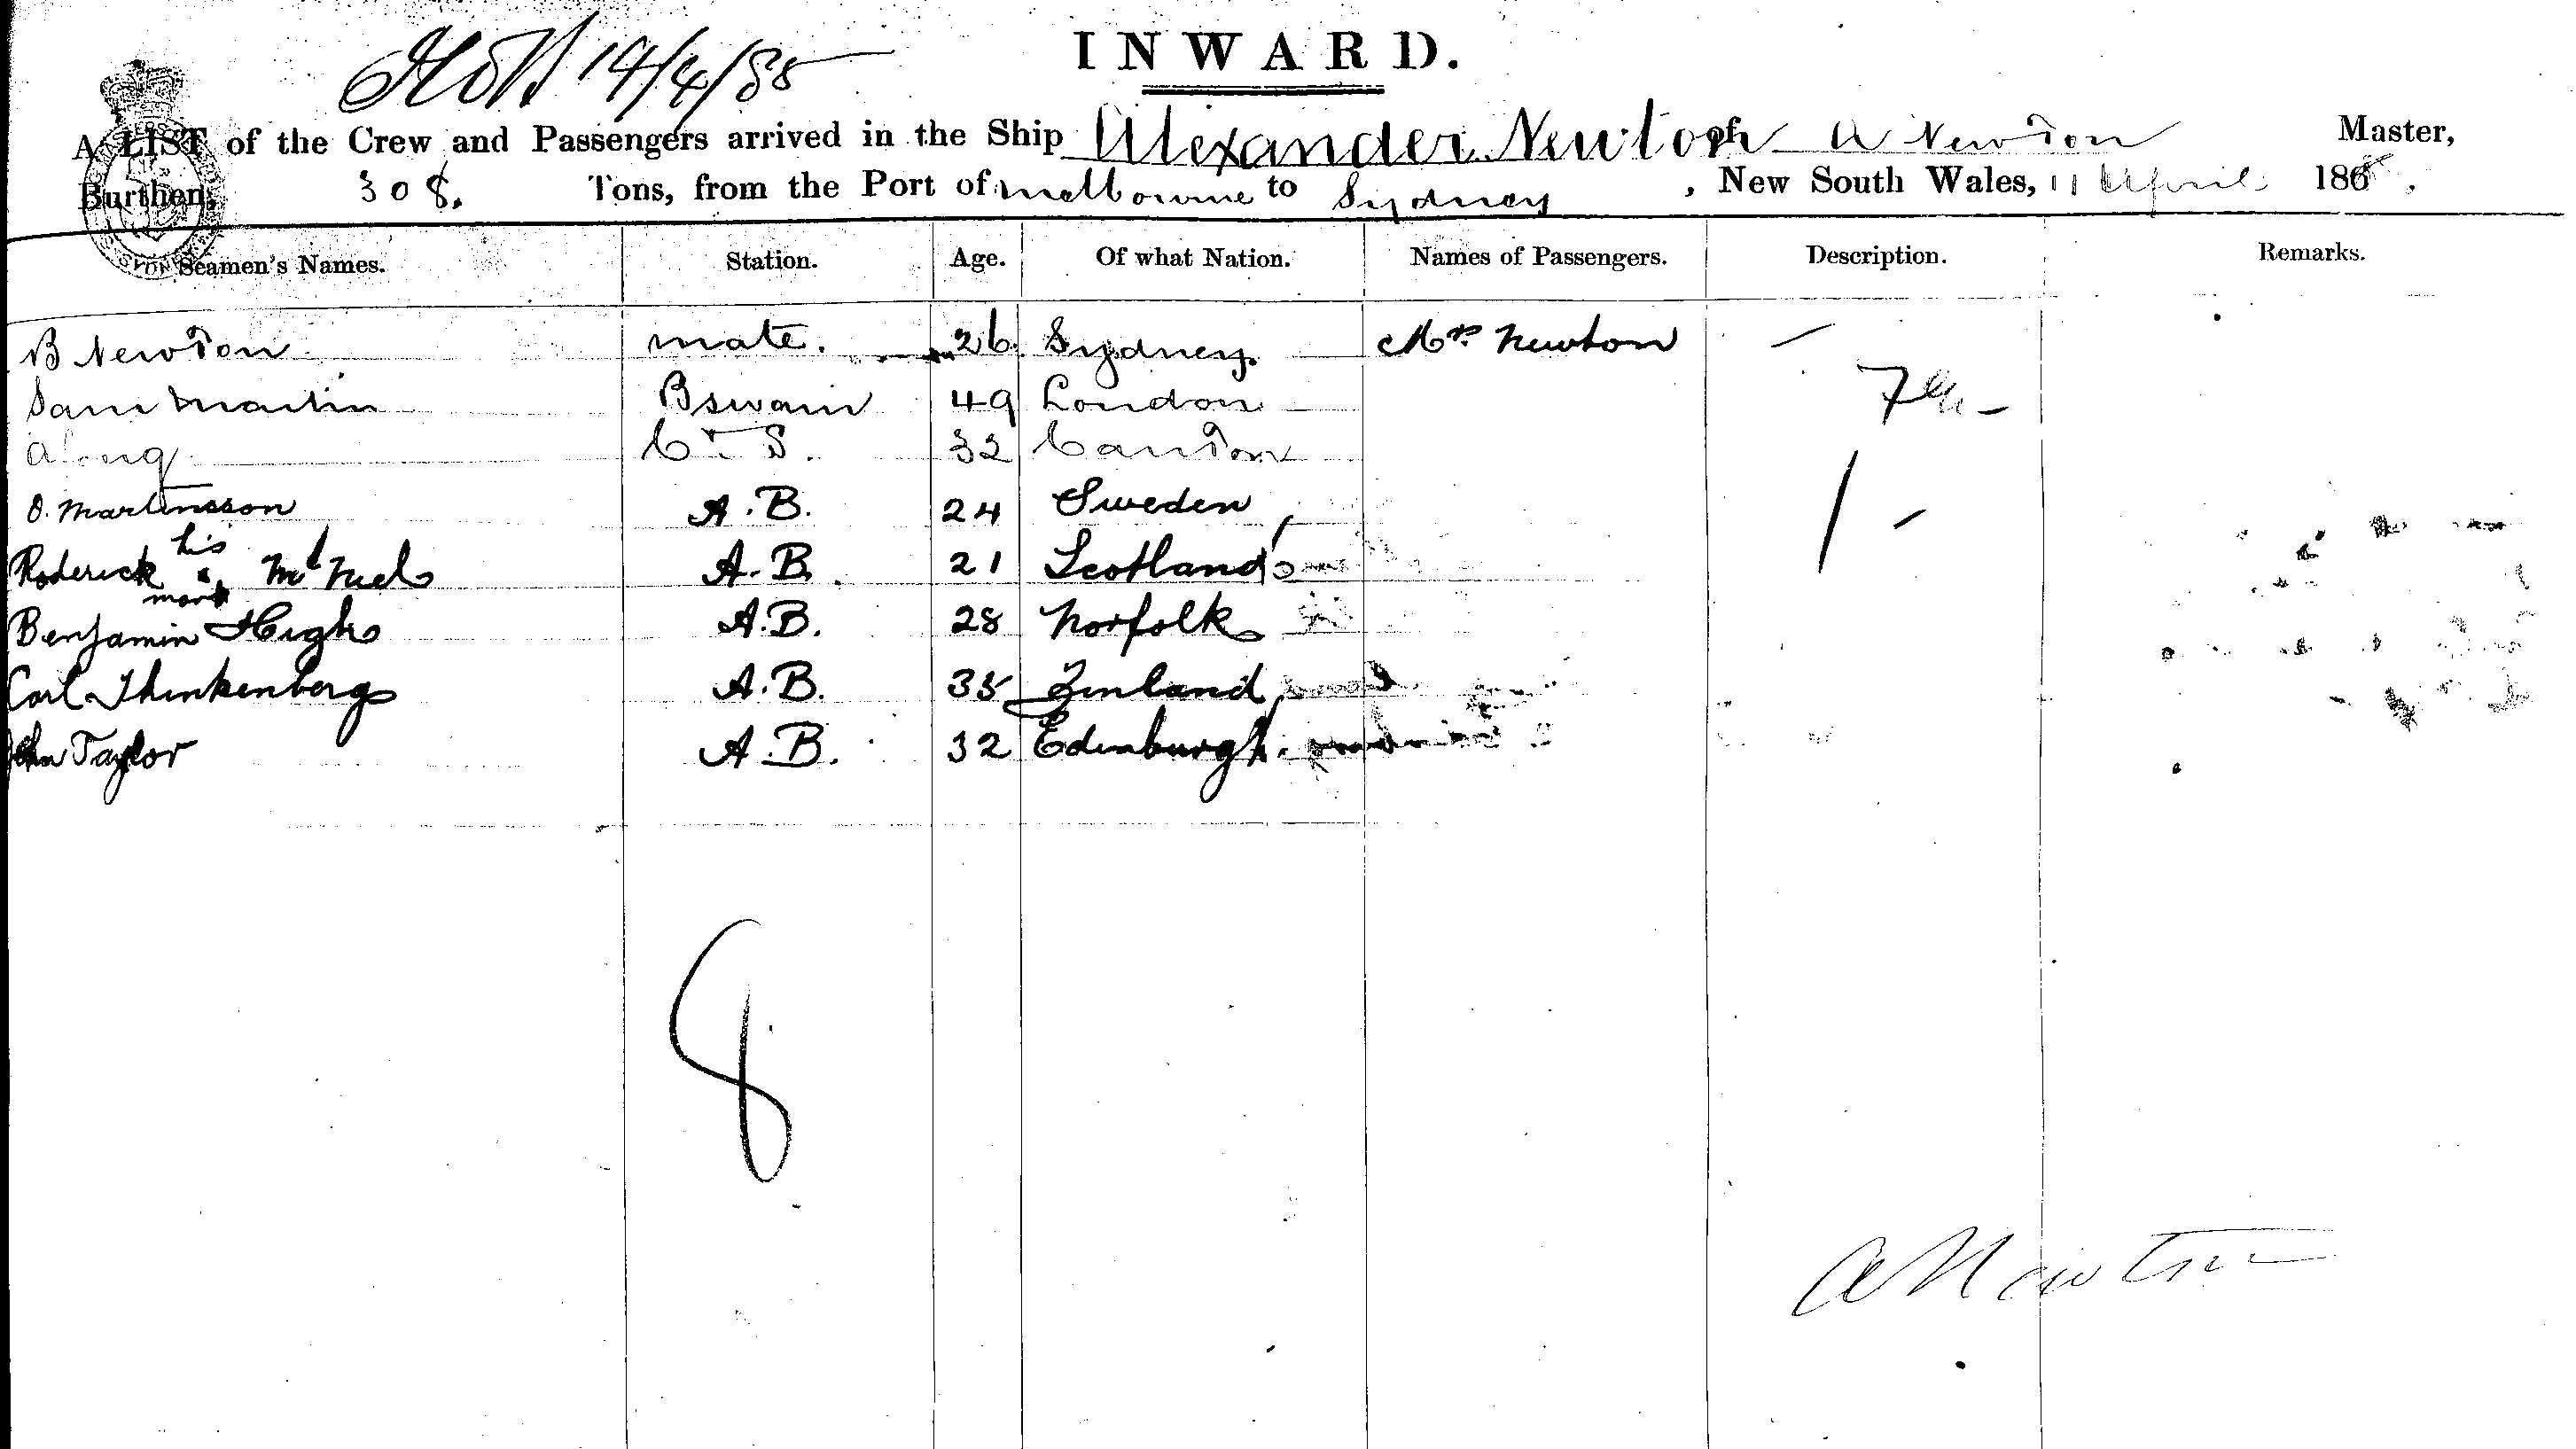 INWARD.
14/4/85
A LIST of the Crew and Passengers arrived in the Ship Alexander Newton of A Newton Master,
Burthen, 308. Tons, from the Port of Melbourne to Sydney, New South Wales, 11 April 188
Seamen's Names. Station. Age. Of what Nation. Names of Passengers. Description. Remarks.
B Newton mate. 26 Sydney. Mrs Newton
Sam Martin Bswain 49 London
Along C & S. 32 Canton
O. Martinsson A.B. 24 Sweden
Roderick his mark McNeil A.B. 21 Scotland
Benjamin High A.B. 28 Norfolk
Carl Thinkenberg A.B. 35 Finland
John Taylor A.B. 32 Edinburgh.
8
A Newton